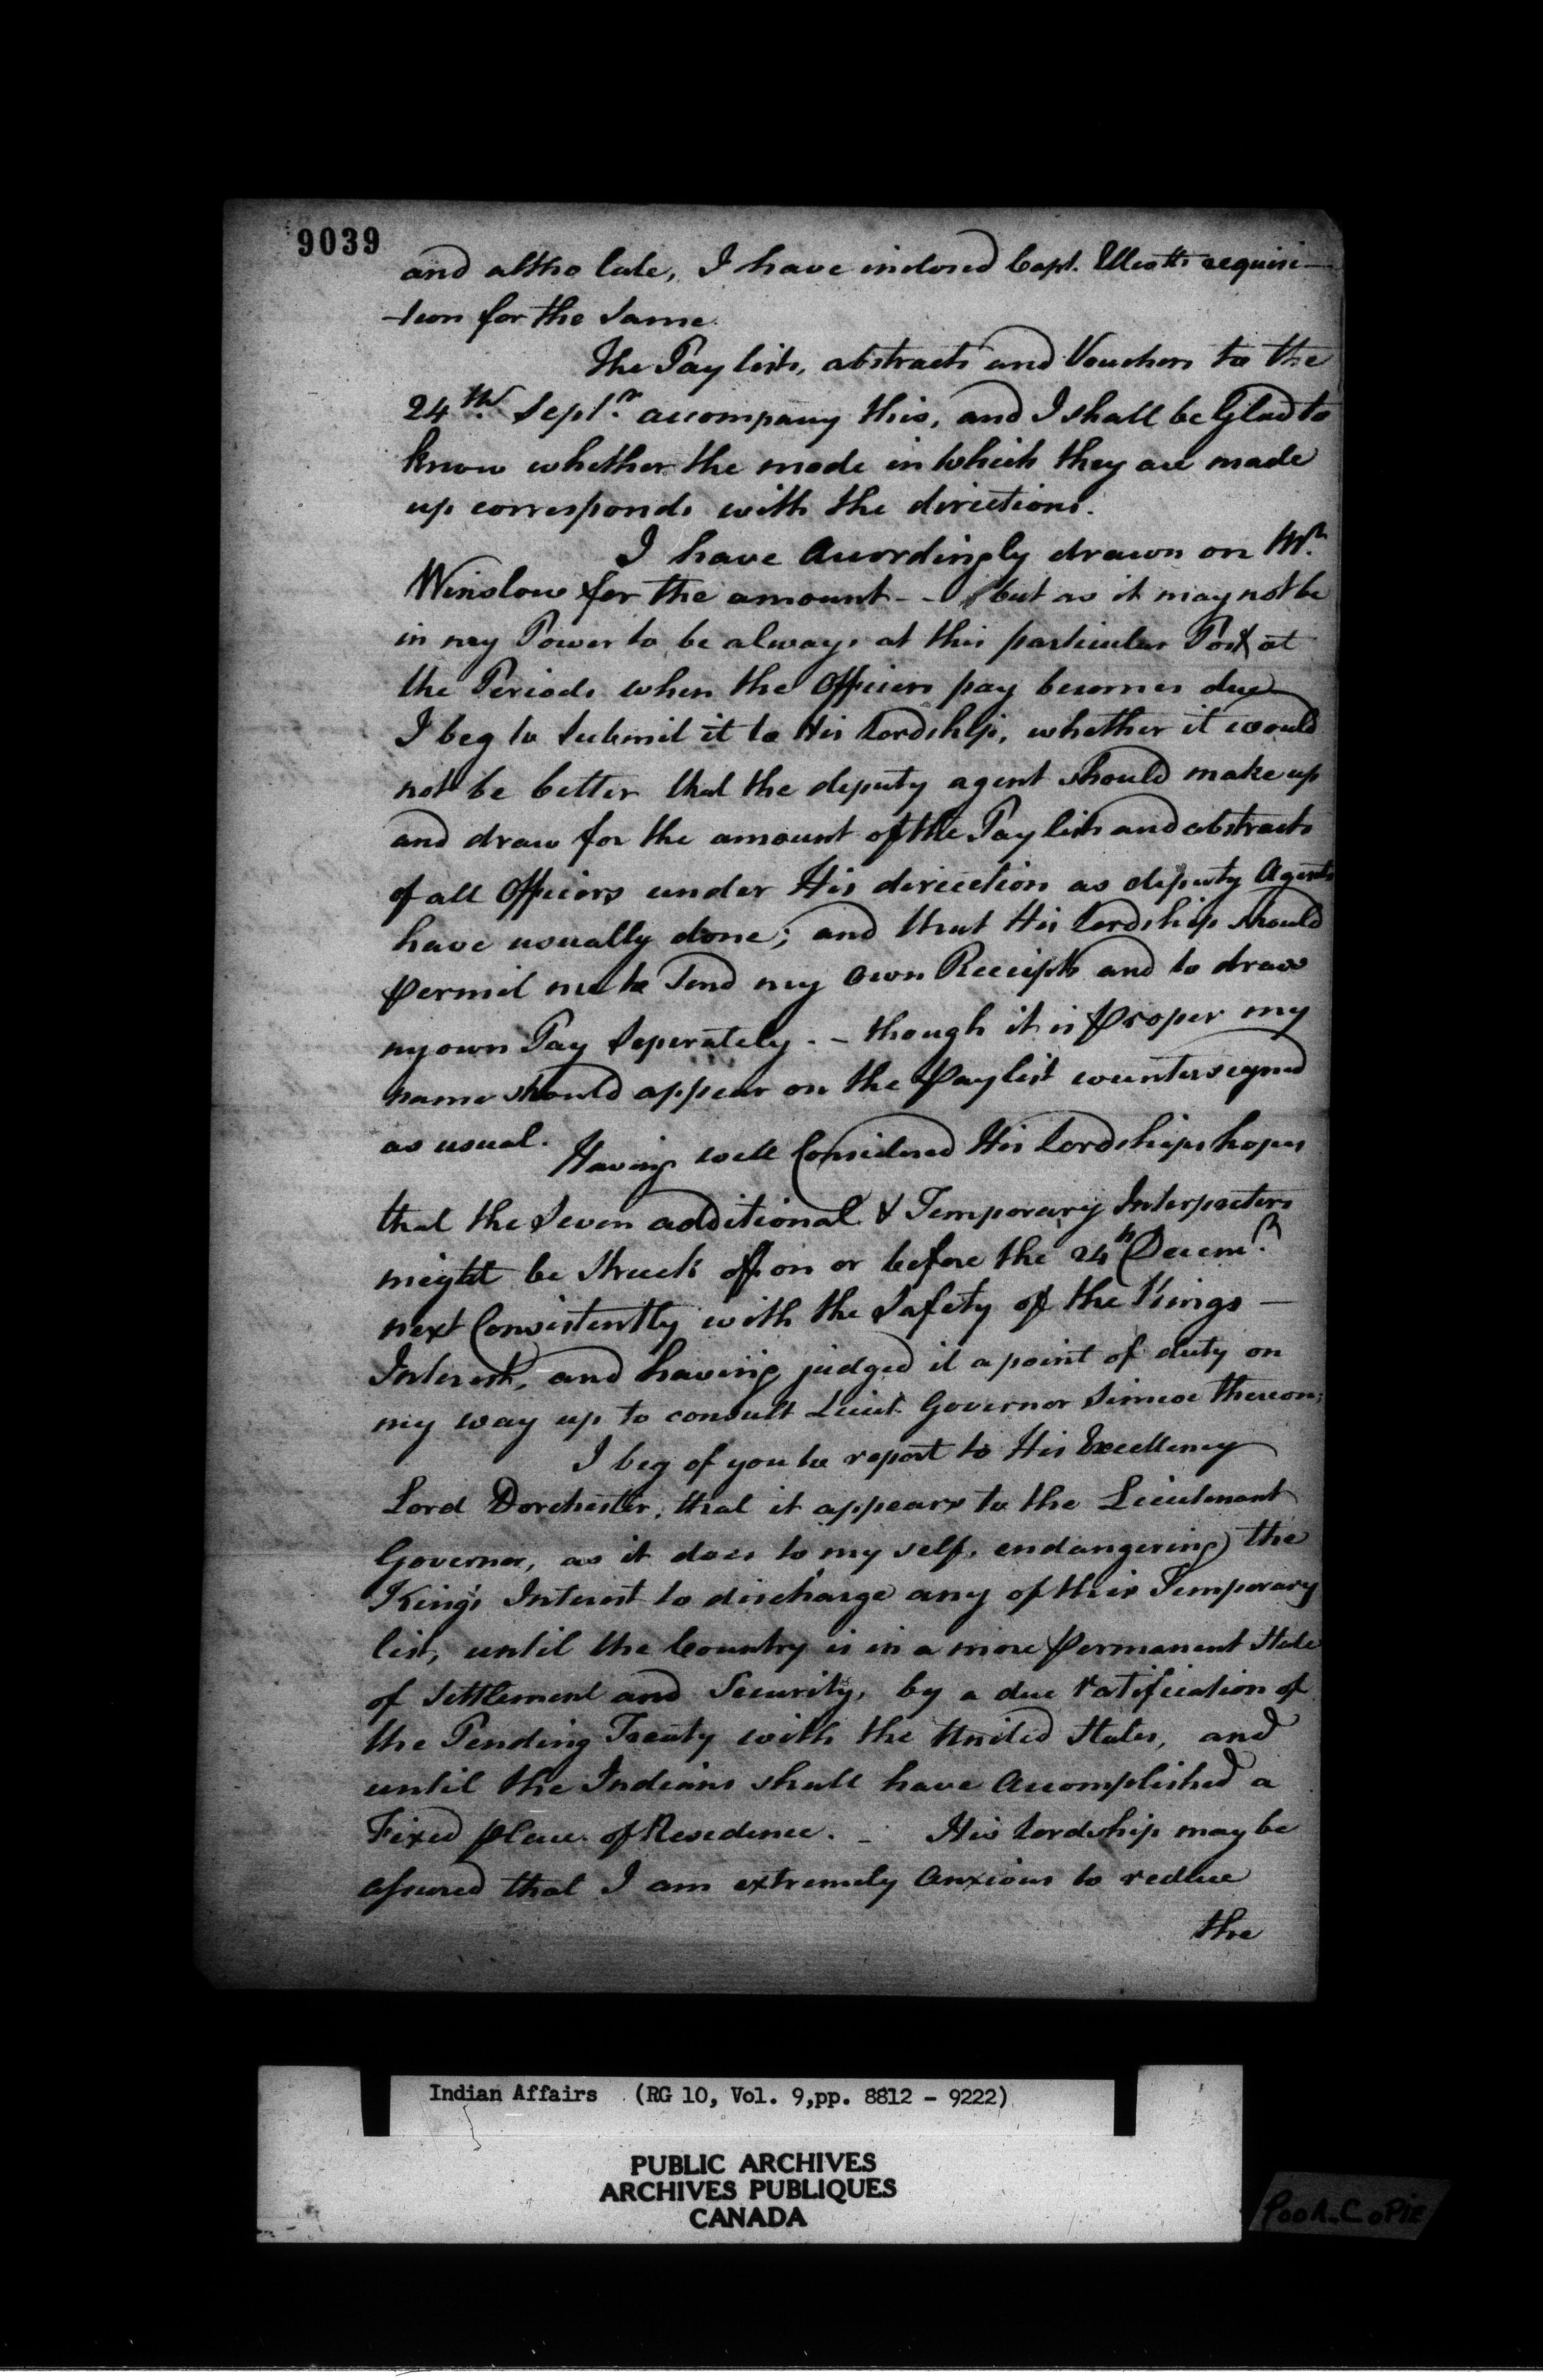 9039
and altho late, I have inclosed Capt. Elliotts requisi-
-tion for the Same.
The Pay lists, abstracts and Vouchers to the
24th. Septr. accompany this, and I shall be Glad to
know whether the mode in which they are made
up corresponds with the directions.
I have Accordingly drawn on Mr.
Winslow for the amount - - but as it may not be
in my Power to be always at this particular Post at
the Periods when the Officers pay becomes due
I beg to Submit it to His Lordship, whether it would
not be better that the deputy agent should make up
and draw for the amount of the Pay lists and abstracts
of all Officers under His direction as deputy Agents
have usually done; and that His Lordship should
permit me to Send my own Receipts and to draw
my own Pay Seperately. - though it is proper my
name should appear on the Paylist countersigned
as usual.
Having well Considered His Lordships hopes
that the Seven additional & Temporary Interpreters
might be Struck off on or before the 24th Decemr.
next Consistently with the Safety of the Kings -
Interest, and having judged it a point of duty on
my way up to consult Lieut. Governor Simcoe thereon;
I beg of you to report to His Excellency
Lord Dorchester, that it appears to the Lieutenant
Governor, as it does to my self, endangering the
King's Interest to discharge any of this Temporary
list, until the Country is in a more permanent State
of Settlement and Security, by a due ratification of
the Pending Treaty with the United States, and
until the Indians shall have Accomplished a
Fixed place of Residence. - His Lordship may be
assured that I am extremely Anxious to reduce
the
Indian Affairs (RG 10, Vol. 9,pp. 8812 - 9222)
PUBLIC ARCHIVES
ARCHIVES PUBLIQUES
CANADA
POOR COPIE